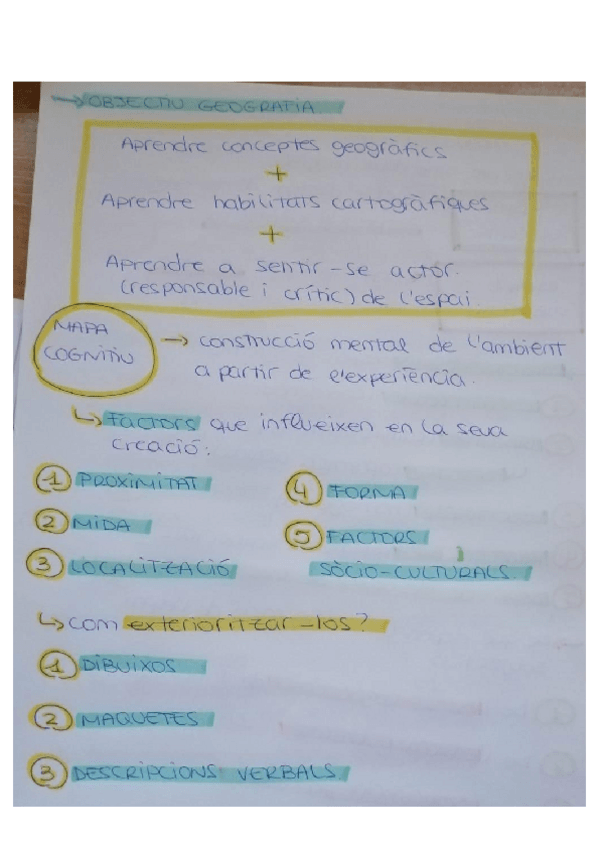 → OBJECTIU GEOGRAFIA
Aprendre conceptes geogràfics
+
Aprendre habilitats cartogràfiques
+
Aprendre a sentir-se actor
(responsable i crític) de l'espai.
MAPA
COGNITIU
→ construcció mental de l'ambient
a partir de l'experiència.
↳ Factors que influeixen en la seva
creació:
1 PROXIMITAT
2 MIDA
3 LOCALITZACIÓ
4 FORMA
5 FACTORS
SÒCIO-CULTURALS.
↳ com exterioritzar-los?
1 DIBUIXOS
2 MAQUETES
3 DESCRIPCIONS VERBALS